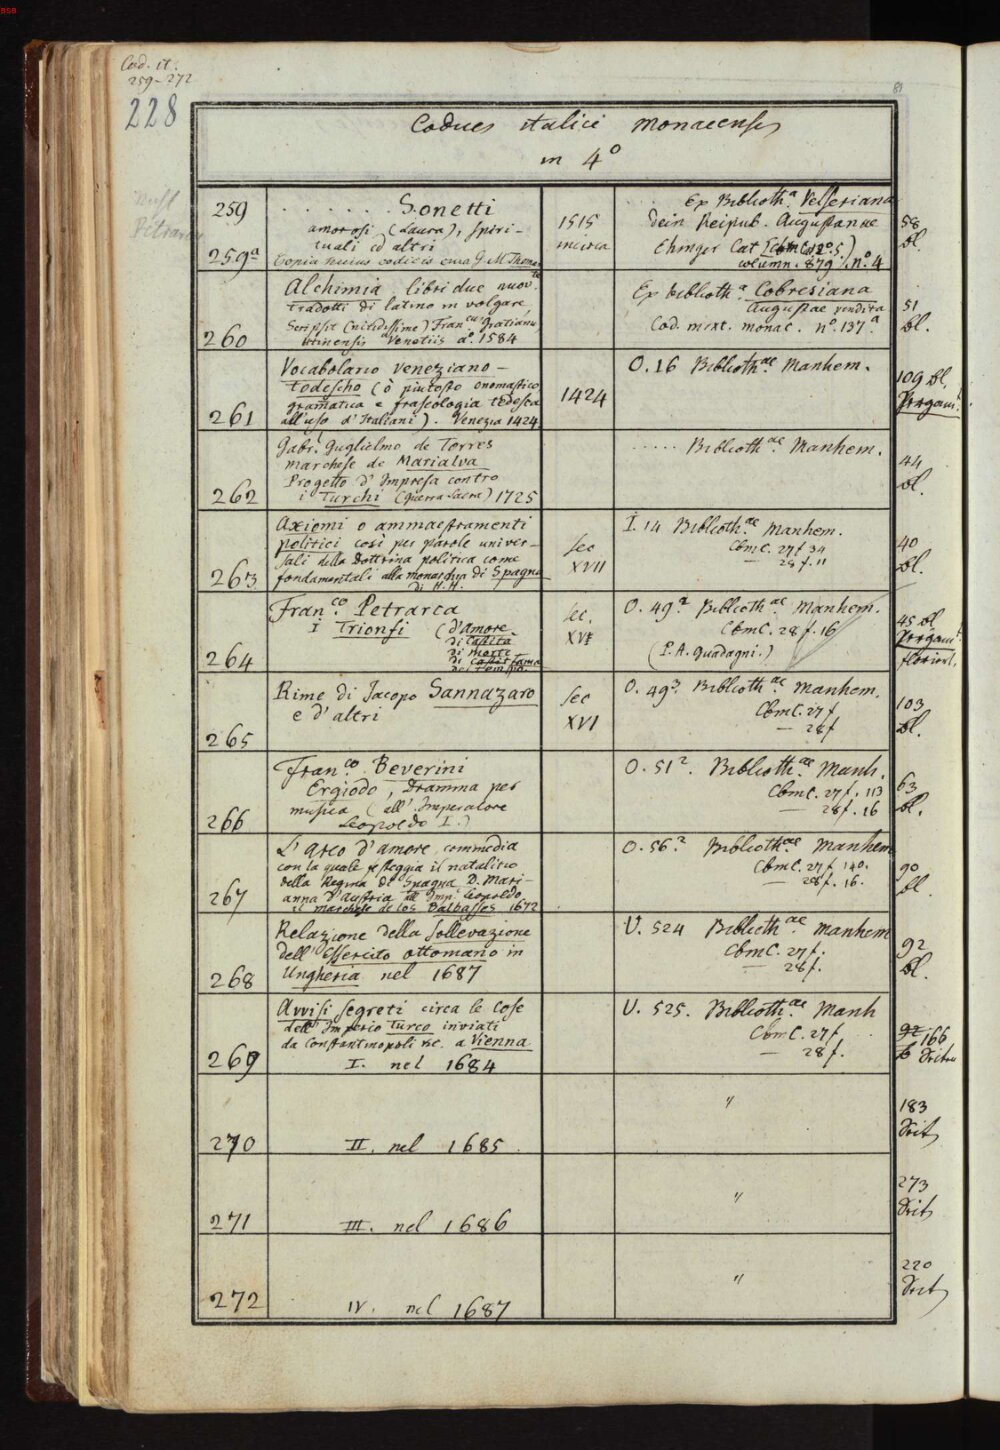 BSB
Cod. it.
259-272
228
81
Codices italici monacenses
in 4º
259
. . . . . . Sonetti
amorosi (Laura), spiri-
tuali ed altri
259ª
Copia huius codicis cura G. M. Thomas
1515
incirca
Ex Biblioth.ª Velseriana
dein Reipub. Augustanae
Ehinger Cat
column. 879 n.º 4
58
bl.
Alchimia libri due nuov.te
tradotti di latino in volgare
Scripsit (nitidissime) Fran.cus Gratianus
Venetiis aº. 1584
260
Ex biblioth.ª Cobresiana
Augustae vendita
Cod. mixt. monac. nº. 137.ª
51
bl.
Vocabolario veneziano-
todescho (ò piutosto onomastico
gramatica e fraseologia tedesca
all'uso d'Italiani). Venezia 1424
261
1424
O. 16 Biblioth.ae Manhem.
109 bl.
Pergam.t
Gabr. Guglielmo de Torres
marchese de Marialva
Progetto d'Impresa contro
i Turchi (Guerra Sacra) 1725
262
. . . . . Biblioth.ae Manhem.
44
bl.
Axiomi o ammaestramenti
politici così per parole univer-
sali della Dottrina politica come
fondamentali alla monarchia di Spagna
di H. H.
263
sec
XVII
I. 14 Biblioth.ae Manhem.
CbmC. 27f 34
— 28 f. 11
40
bl.
Fran.co Petrarca
I Trionfi (d'Amore
di Castità
di morte
di Fama
del Tempo.
264
sec.
XVI
O. 49.2 Biblioth.ae Manhem.
CbmC. 28 f. 16
(P. A. Guadagni.)
45 bl
Pergam.t
Rime di Jacopo Sannazaro
e d'altri
265
sec
XVI
O. 49.3 Biblioth.ae Manhem.
CbmC. 27 f
— 28f
103
bl.
Fran.co Beverini
Ergiodo, Dramma per
musica (all' Imperatore
Leopoldo I.)
266
O. 51 2. Biblioth.ae Manh.
CbmC. 27 f. 113
— 28 f. 16
63
bl.
L'Arco d'amore, commedia
con la quale festeggia il natalitio
della Regina di Spagna D. Mari-
anna d'Austria all' Imp. Leopoldo
il marchese de los Balbasses 1672
267
O. 56.2 Biblioth.ae Manhem
CbmC. 27 f 140.
— 28f. 16.
90
bl.
Relazione della Sollevazione
dell' Essercito ottomano in
Ungheria nel 1687
268
U. 524 Biblioth.ae manhem
CbmC. 27 f.
— 28 f.
92
bl.
Avvisi segreti circa le cose
dell' Imperio Turco inviati
da Constantinopoli &c. a Vienna.
269
I. nel 1684
U. 525. Biblioth.ae Manh
CbmC. 27 f
— 28 f.
92 166
270
II. nel 1685
"
183
271
III. nel 1686
"
273
272
IV. nel 1687
"
220